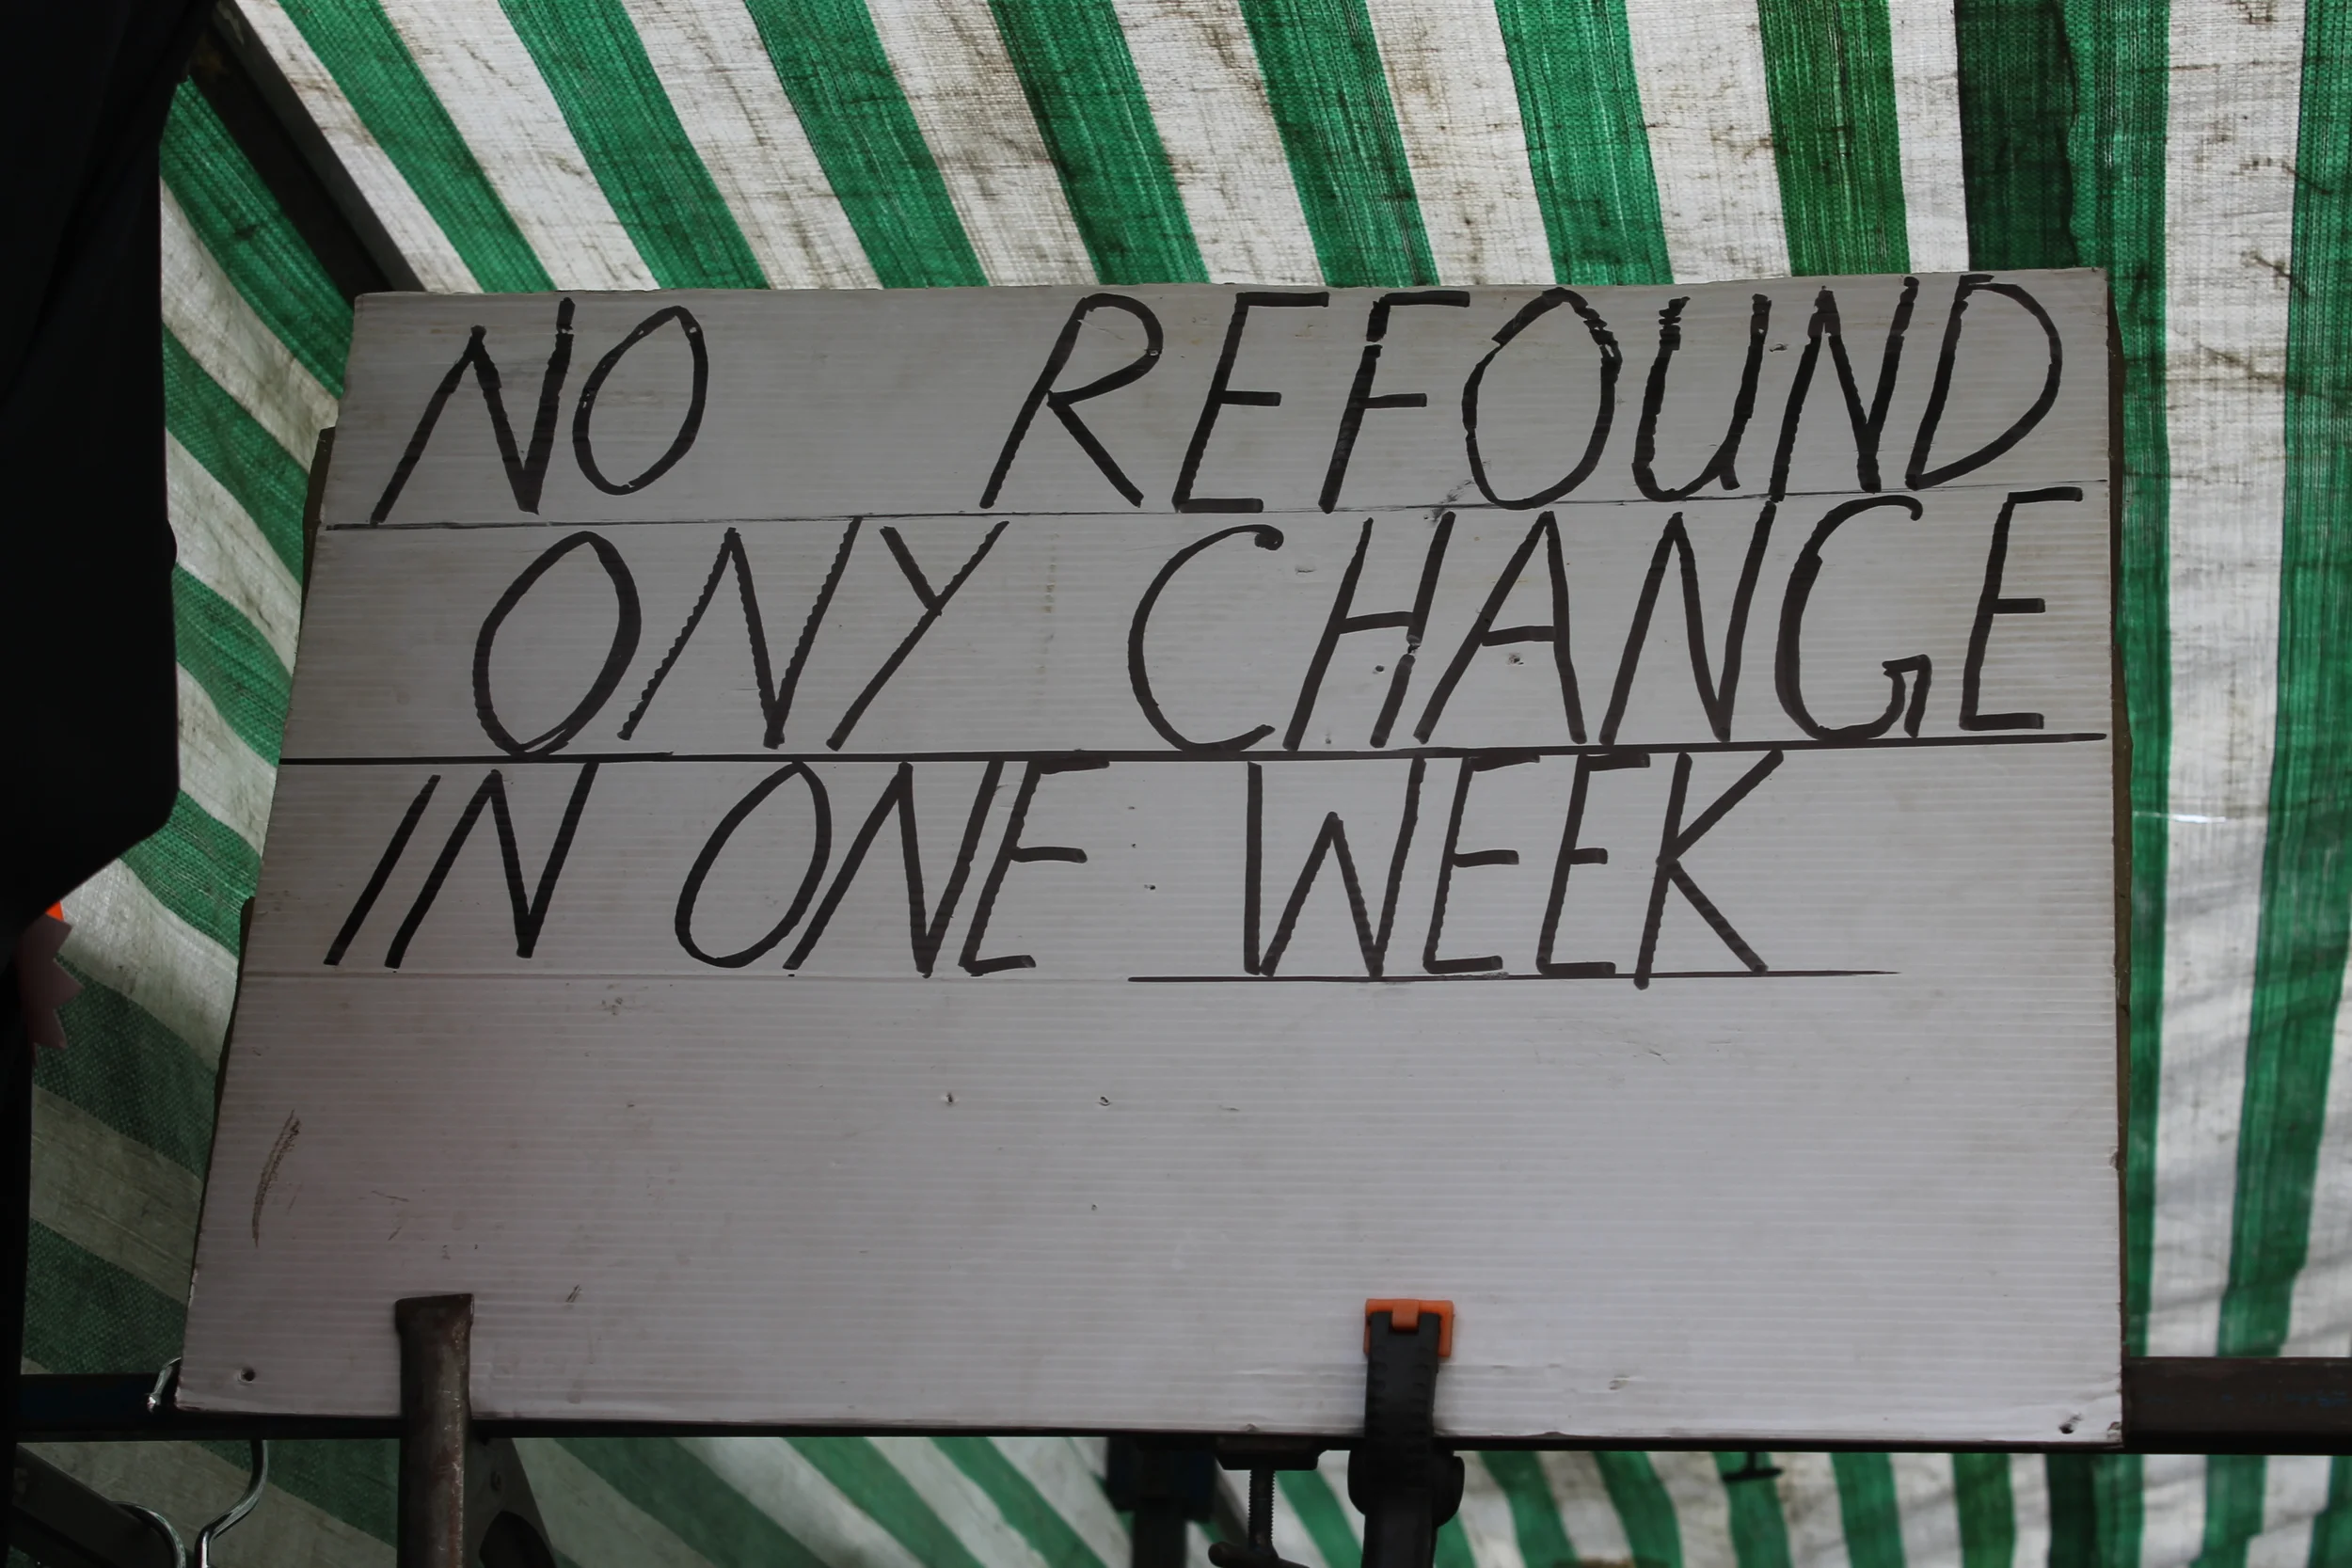 NO REFOUND
ONY CHANGE
IN ONE WEEK